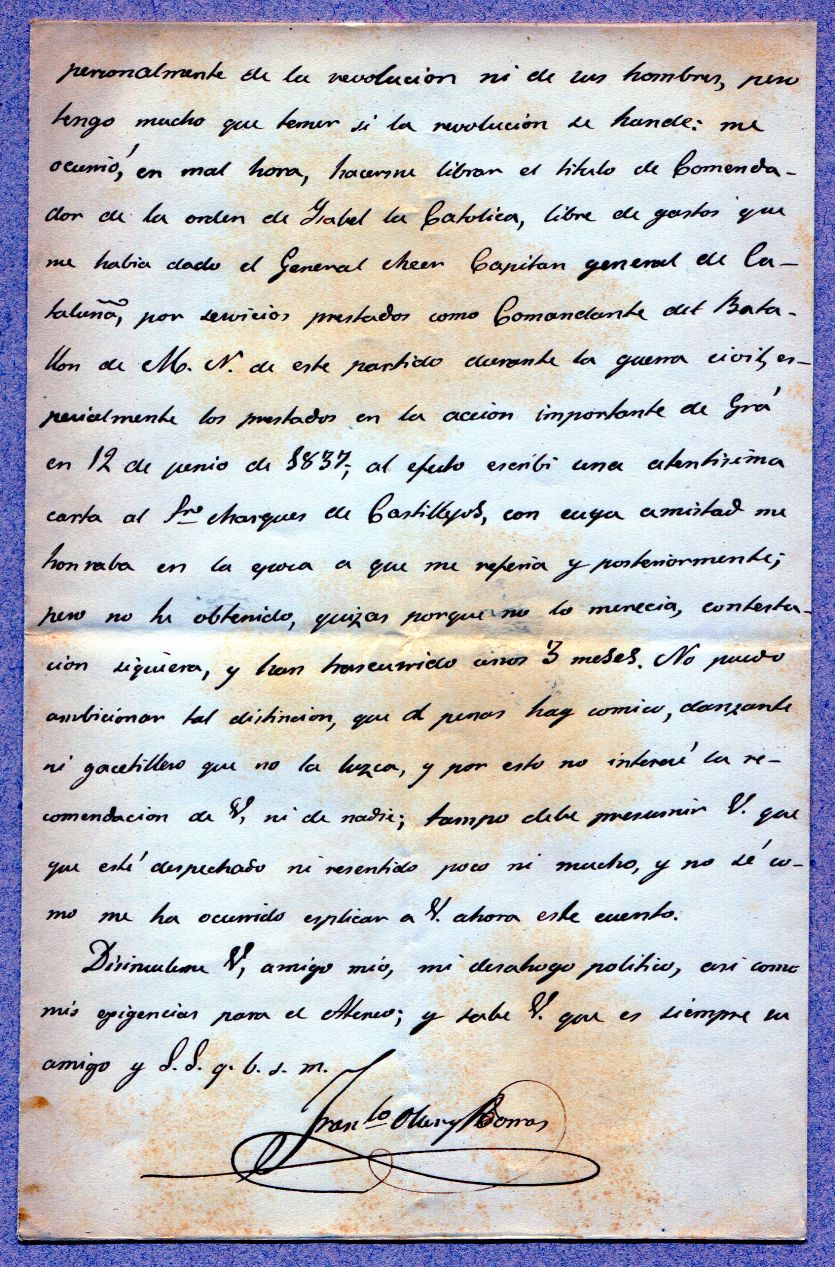 personalmente de la revolucion ni de sus hombres, pero
tengo mucho que temer si la revolución se hunde: me
ocurrió, en mal hora, hacerme librar el titulo de Comenda-
dor de la orden de Isabel la Catolica, libre de gastos que
me habia dado el General Meer Capitan general de Ca-
taluña, por servicios prestados como Comandante del Bata-
llon de M. N. de este partido durante la guerra civil, es-
pecialmente los prestados en la accion importante de Grá
en 12 de junio de 1837; al efecto escribi una atentisima
carta al Sro. Marques de Castillejos, con cuya amistad me
honraba en la epoca a que me referia y posteriormente;
pero no he obtenido, quizas porque no lo merecia, contesta-
cion siquiera, y han trascurrido unos 3 meses. No puedo
ambicionar tal distincion, que á penas hay comico, danzante
ni gacetillero que no la luzca, y por esto no interesé la re-
comendacion de V, ni de nadie; tampo debe presumir V. que
que esté despechado ni resentido poco ni mucho, y no sé co-
mo me ha ocurrido esplicar a V. ahora este cuento.
Disimuleme V, amigo mio, mi desahogo politico, asi como
mis exigencias para el Ateneo; y sabe V. que es siempre su
amigo y S. S. q. b. s. m.
Fran.co Oller y Borras